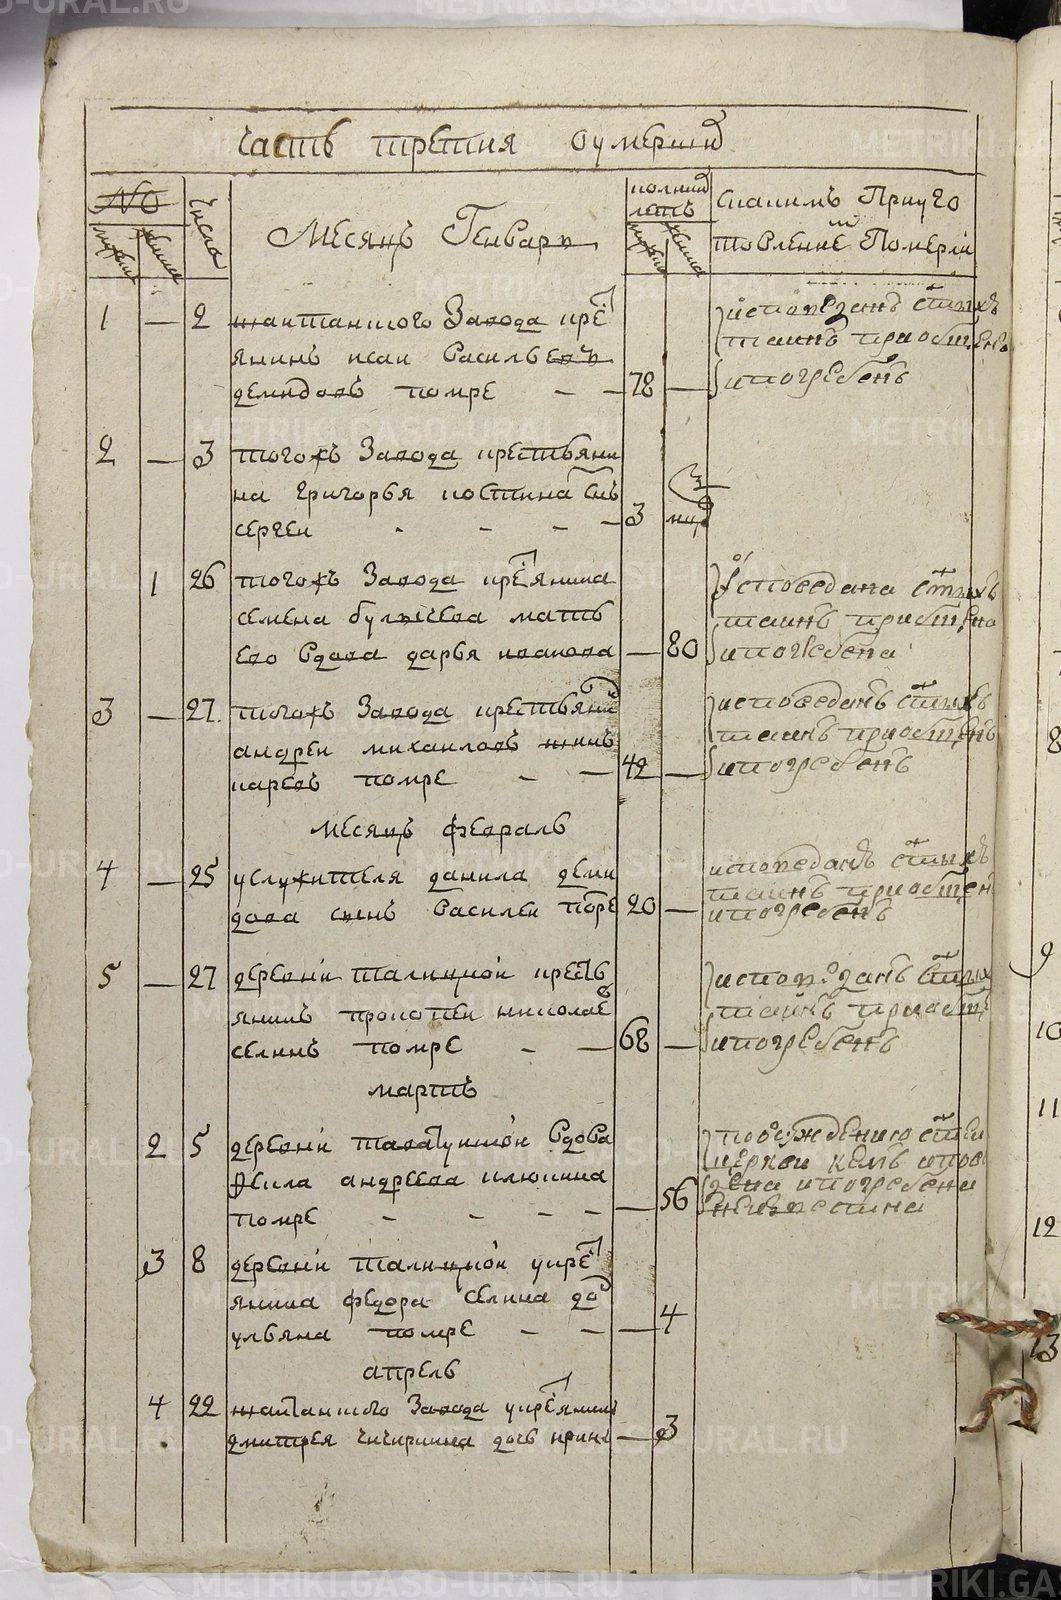 часть третия оумерших
№
мужеска
женска
числа
Месяцъ Генварь
колики
летъ
мужеска
женска
Какимъ Приуго
товление Померли
1 — 2 шайтанского Завода кре
янинъ исаи Василъевъ
демидовъ помре — — 78 —
исповеданъ стыхъ
таинъ приобщенъ
и погребенъ
2 — 3 тогожъ Завода крестьяни
на григорья костина снъ
сергеи - - - — 3
1 26 тогожъ Завода кре янина
семена булычева мать
Ево Вдова дарья иванова — 80
Исповедана стыхъ
таинъ приобщена
и погребена
3 — 27. тогожъ Завода крестьянинъ
андреи михаиловъ
помре — — 42 —
исповеданъ стыхъ
таинъ приобщенъ
и погребенъ
месяцъ февраль
4 — 25 служителя данила деми
дова сынъ Василеи помре 20 —
исповеданъ стыхъ
таинъ приобщен
и погребенъ
5 — 27 деревни талицкой кресть
янинъ прокопеи николаев
селинъ помре - — 68 —
исповеданъ стыхъ
таинъ приобщ
и погребенъ
мартъ
2 5 деревни Вдова
андреева илюшина
помре - - - - — 56
стеи
церкви кемъ отпо
и погребена
неизвестна
3 8 деревни талицкой кре
янина федора селина до
ульяна помре — — — 4
апрель
4 22 шайтанского Завода кре янина
дмитрея дочь — 3
8
9
10
11
12
13
METRIKI.GASO-URAL.RU